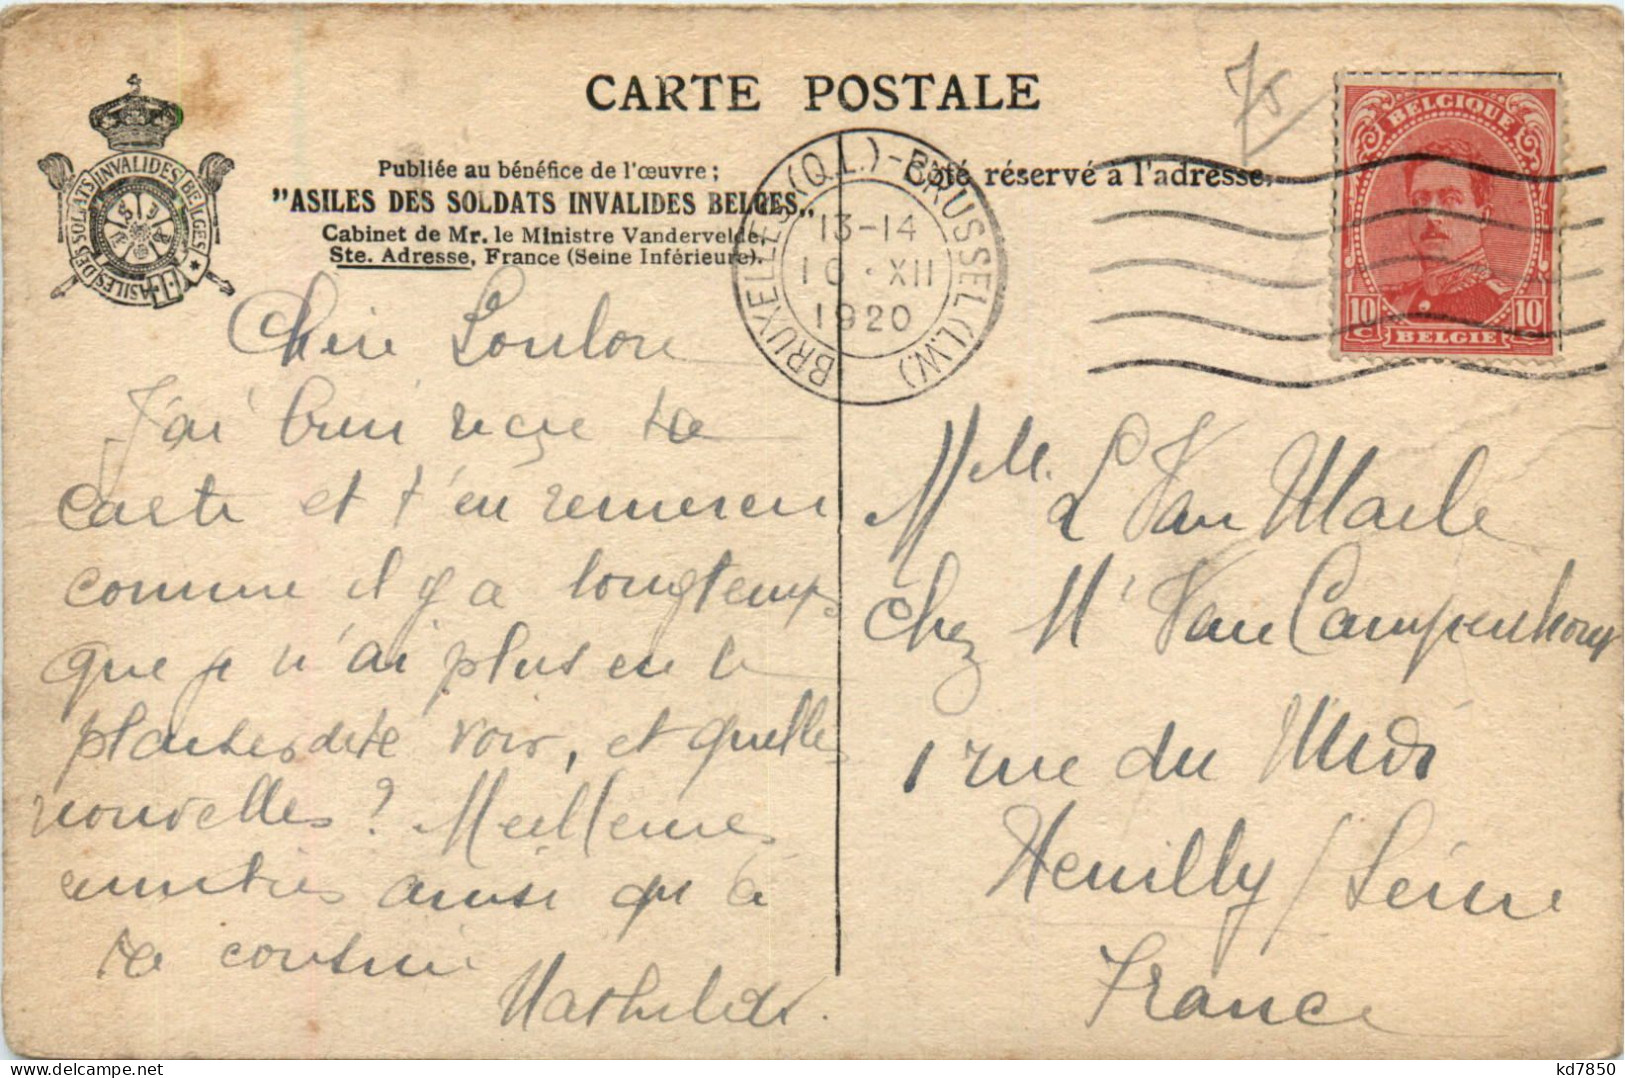 CARTE POSTALE
75
Publiée au bénéfice de l'œuvre ;
"ASILES DES SOLDATS INVALIDES BELGES„
Cabinet de Mr. le Ministre Vandervelde,
Ste. Adresse, France (Seine Inférieure).
Côté réservé à l'adresse.
ASILES DES SOLDATS INVALIDES BELGES
BRUXELLES (Q.L.) - BRUSSEL (L.W.)
13-14
10 · XII
1920
BELGIQUE
10 C 10
BELGIE
Chère Loulou
J'ai bien reçu ta
carte et t'en remercie
comme il y a longtemps
que je n'ai plus eu le
plaisir de te voir, et quelles
nouvelles ? Meilleures
amitiés ainsi qu'à
ta cousine
Mathilde.
Melle. L Van Marle
chez Mr Van Campenhout
1 rue du Midi
Neuilly / Seine
France
kd7850